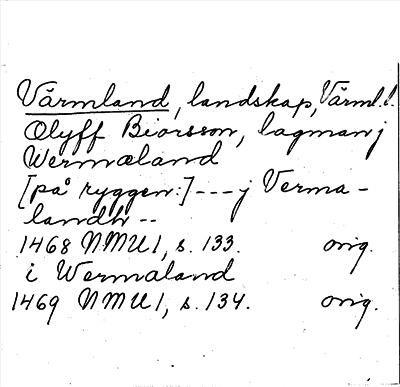 Värmland, landskap, Värml.l.
Olyff Biorsson, lagman j
Wermæland
[på ryggen:] --- j Verma-
landh --
1468 NMU 1, s. 133. orig.
i Wermaland
1469 NMU 1, s. 134. orig.